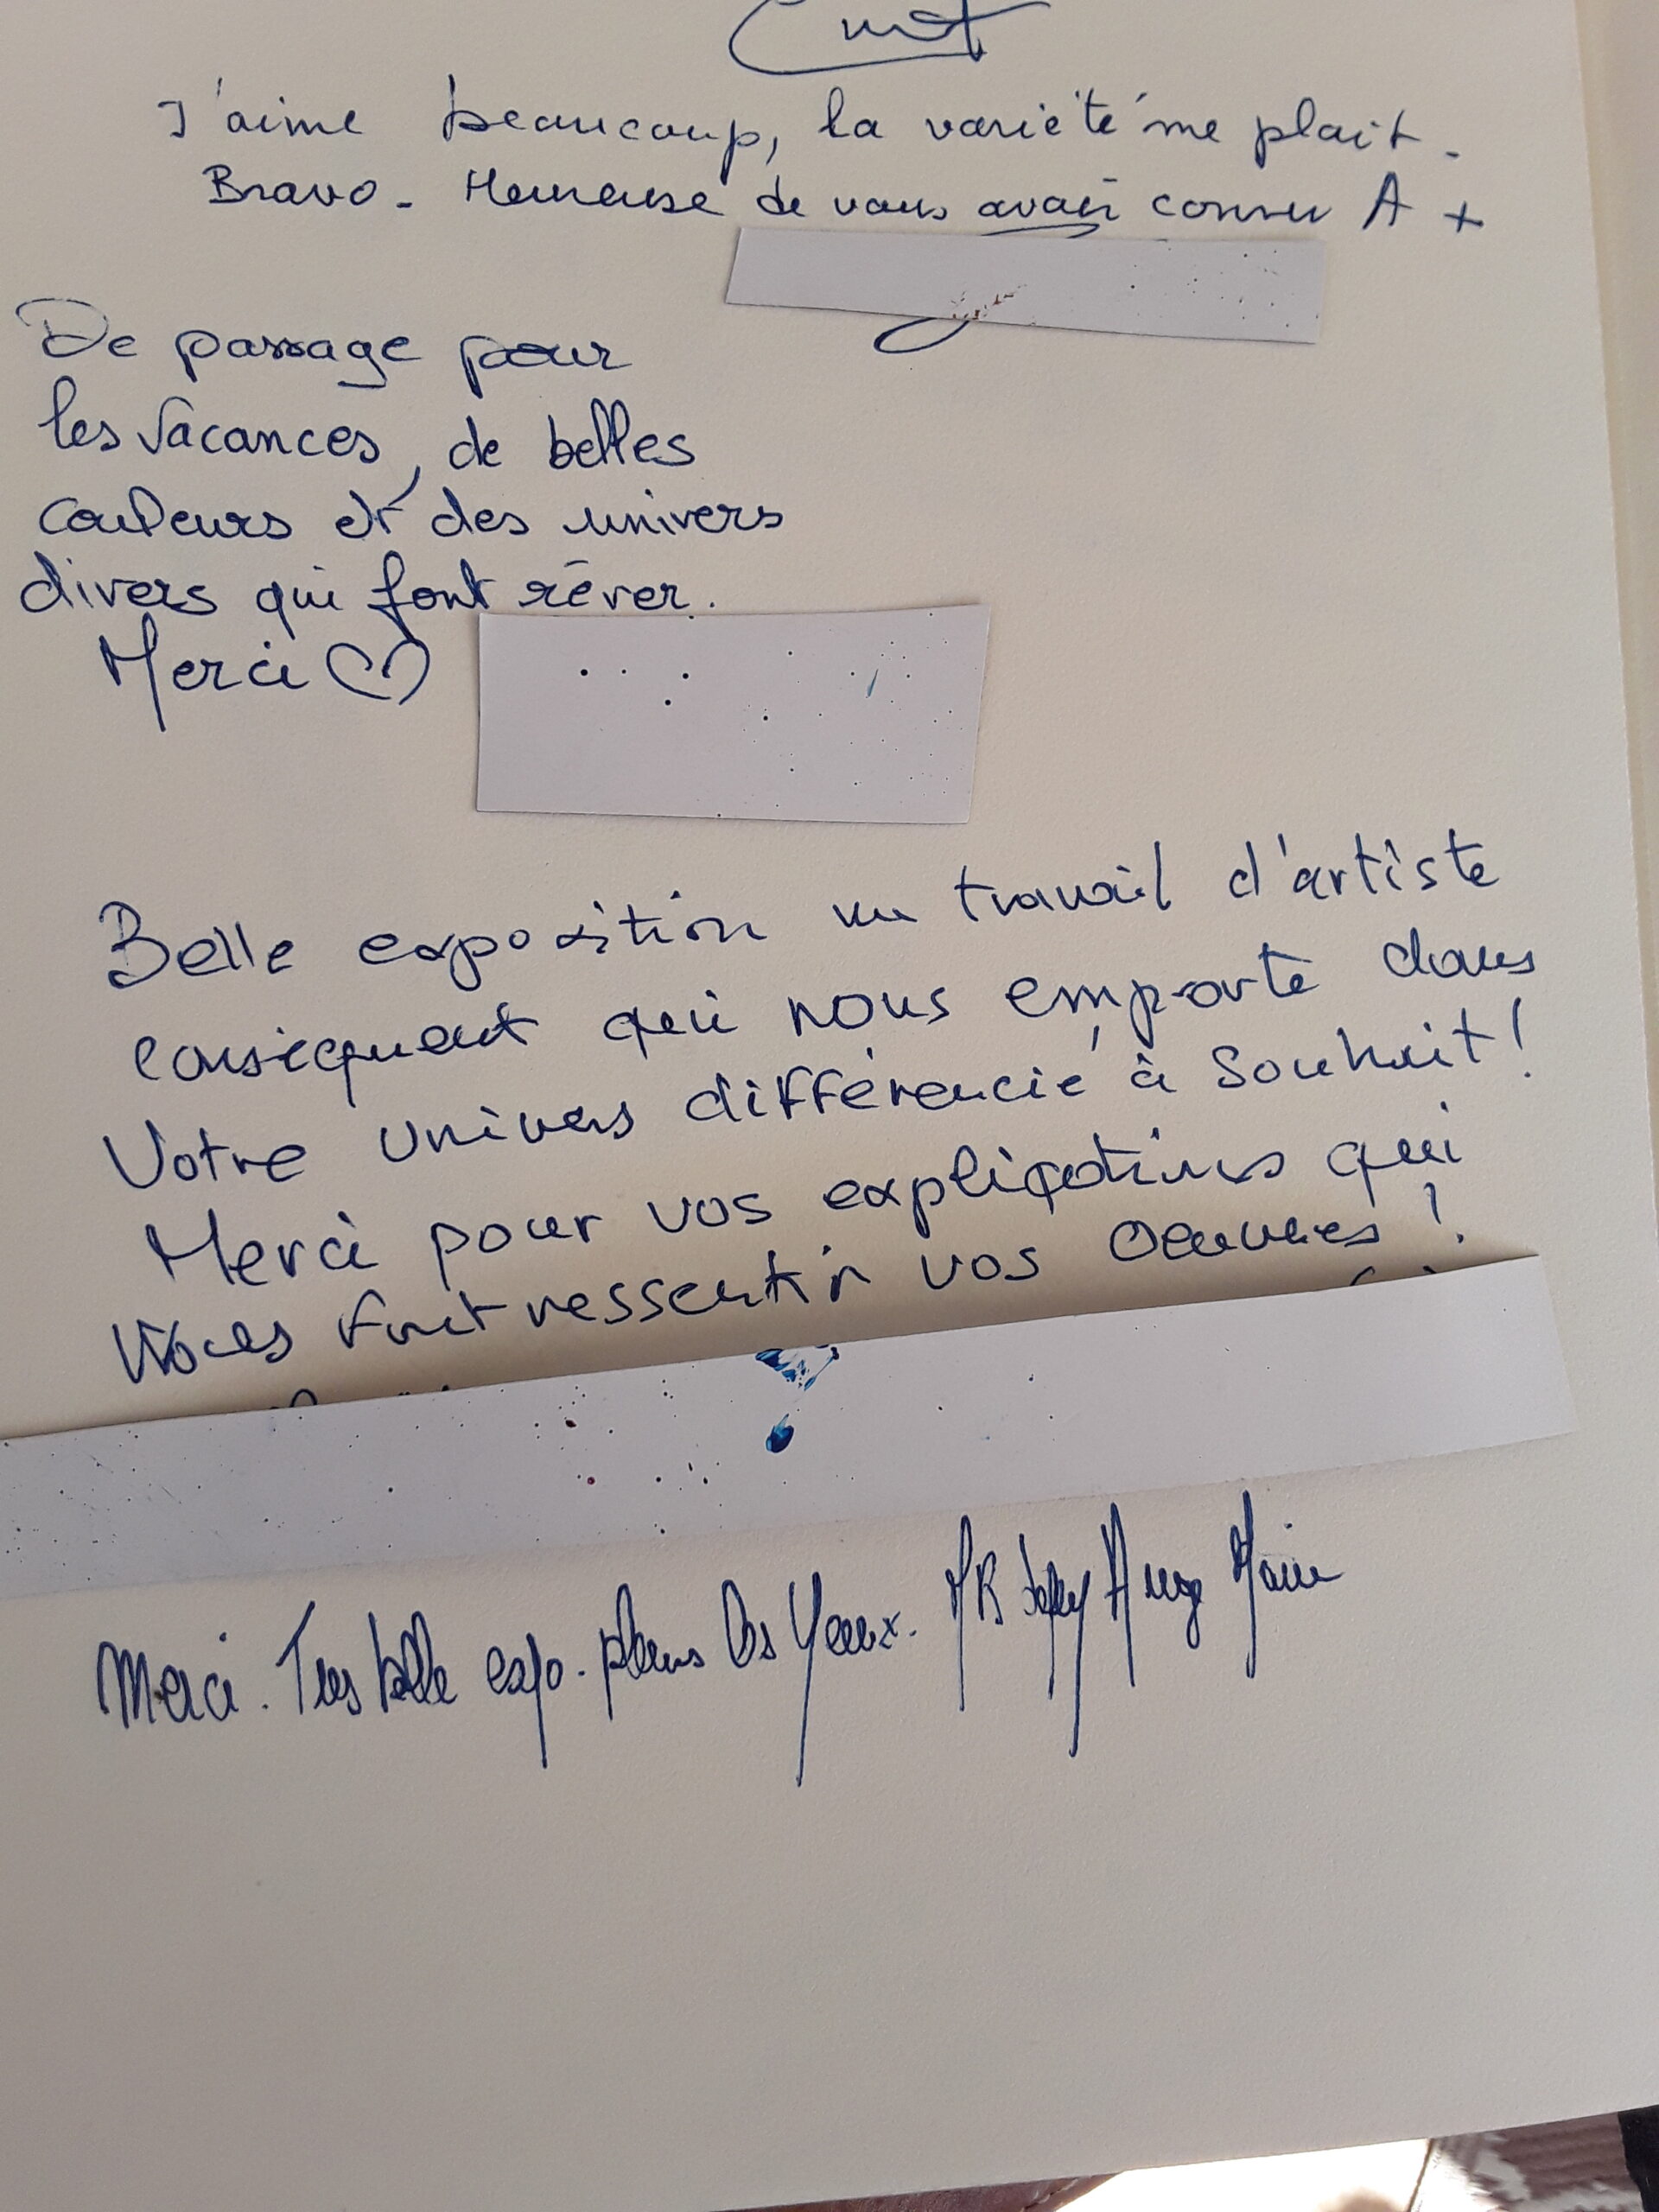 J'aime beaucoup, la variété me plait.
Bravo - Heureuse de vous avoir connu A +
De passage pour
les vacances, de belles
couleurs et des univers
divers qui font rêver.
Merci ♡
Belle exposition un travail d'artiste
conséquent qui nous emporte dans
Votre univers différencié à Souhait !
Merci pour vos explications qui
Nous font ressentir vos oeuvres !
Merci. Tres belle expo. pleins les Yeux. Ange Marie